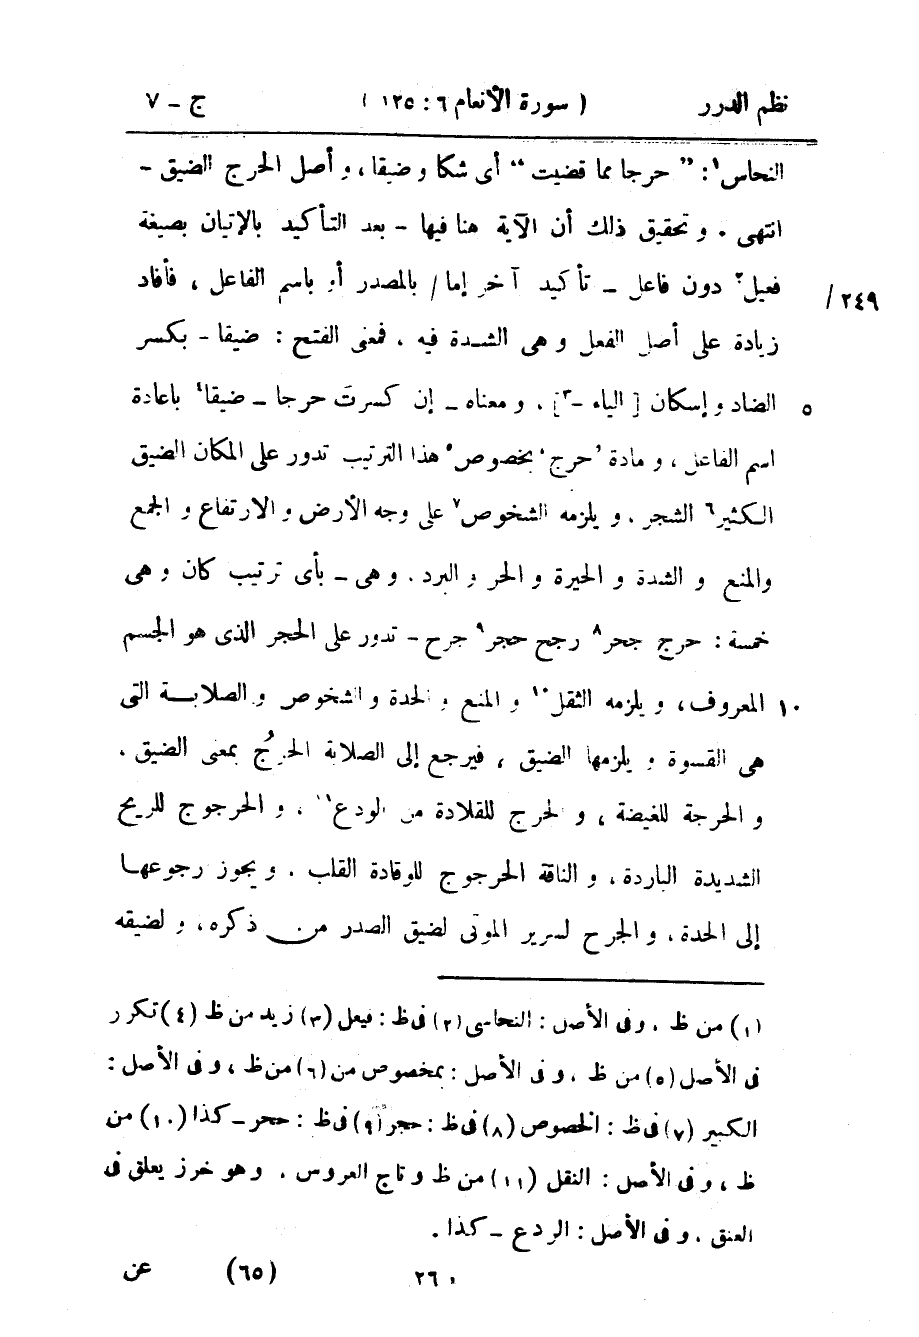 نظم الدرر ( سورة الأنعام ٦ : ١٢٥ ) ج - ٧
النحاس١: ” حرجا مما قضيت “ أى شكا و ضيقا ، و أصل الحرج الضيق -
انتهى . و تحقيق ذلك أن الآية هنا فيها - بعد التأكيد بالإتيان بصيغة
فعيل٢ دون فاعل - تأكيد آخر إما / بالمصدر أو باسم الفاعل ، فأفاد ٢٤٩ /
زيادة على أصل الفعل و هى الشدة فيه . فمعنى الفتح : ضيقا - بكسر
الضاد و إسكان [ الياء -٣] . و معناه - إن كسرت حرجا - ضيقا٤ باعادة ٥
اسم الفاعل ، و مادة ’حرج‘ بخصوص٥ هذا الترتيب تدور على المكان الضيق
الكثير٦ الشجر . و يلزمه الشخوص٧ على وجه الأرض و الارتفاع و الجمع
والمنع و الشدة و الحيرة و الحر و البرد . و هى - بأى ترتيب كان و هى
خمسة : حرج جحر٨ رجح حجر٩ جرح - تدور على الحجر الذى هو الجسم
المعروف ، و يلزمه الثقل١٠ و المنع و الحدة و الشخوص و الصلابة التى ١٠
هى القسوة و يلزمها الضيق ، فيرجع إلى الصلابة الحرجُ بمعنى الضيق .
و الحرجة للغيضة ، و الحرج للقلادة من الودع١١ ، و الحرجوج للريح
الشديدة الباردة ، و الناقة الحرجوج للوقادة القلب . و يجوز رجوعها
إلى الحدة ، و الجرح لسرير الموتى لضيق الصدر من ذكره ، و لضيقه
(١) من ظ ، و فى الأصل : النحاسى (٢) فى ظ : فيعل (٣) زيد من ظ (٤) تكرر
فى الأصل (٥) من ظ ، و فى الأصل : بمخصوص من (٦) من ظ ، و فى الأصل :
الكبير (٧) فى ظ : الخصوص (٨) فى ظ : حجر (٩) فى ظ : ححر - كذا (١٠) من
ظ ، و فى الأصل : النقل (١١) من ظ و تاج العروس . و هو خرز يعلق فى
العنق . و فى الأصل : الردع - كذا .
٢٦٠ (٦٥) عن